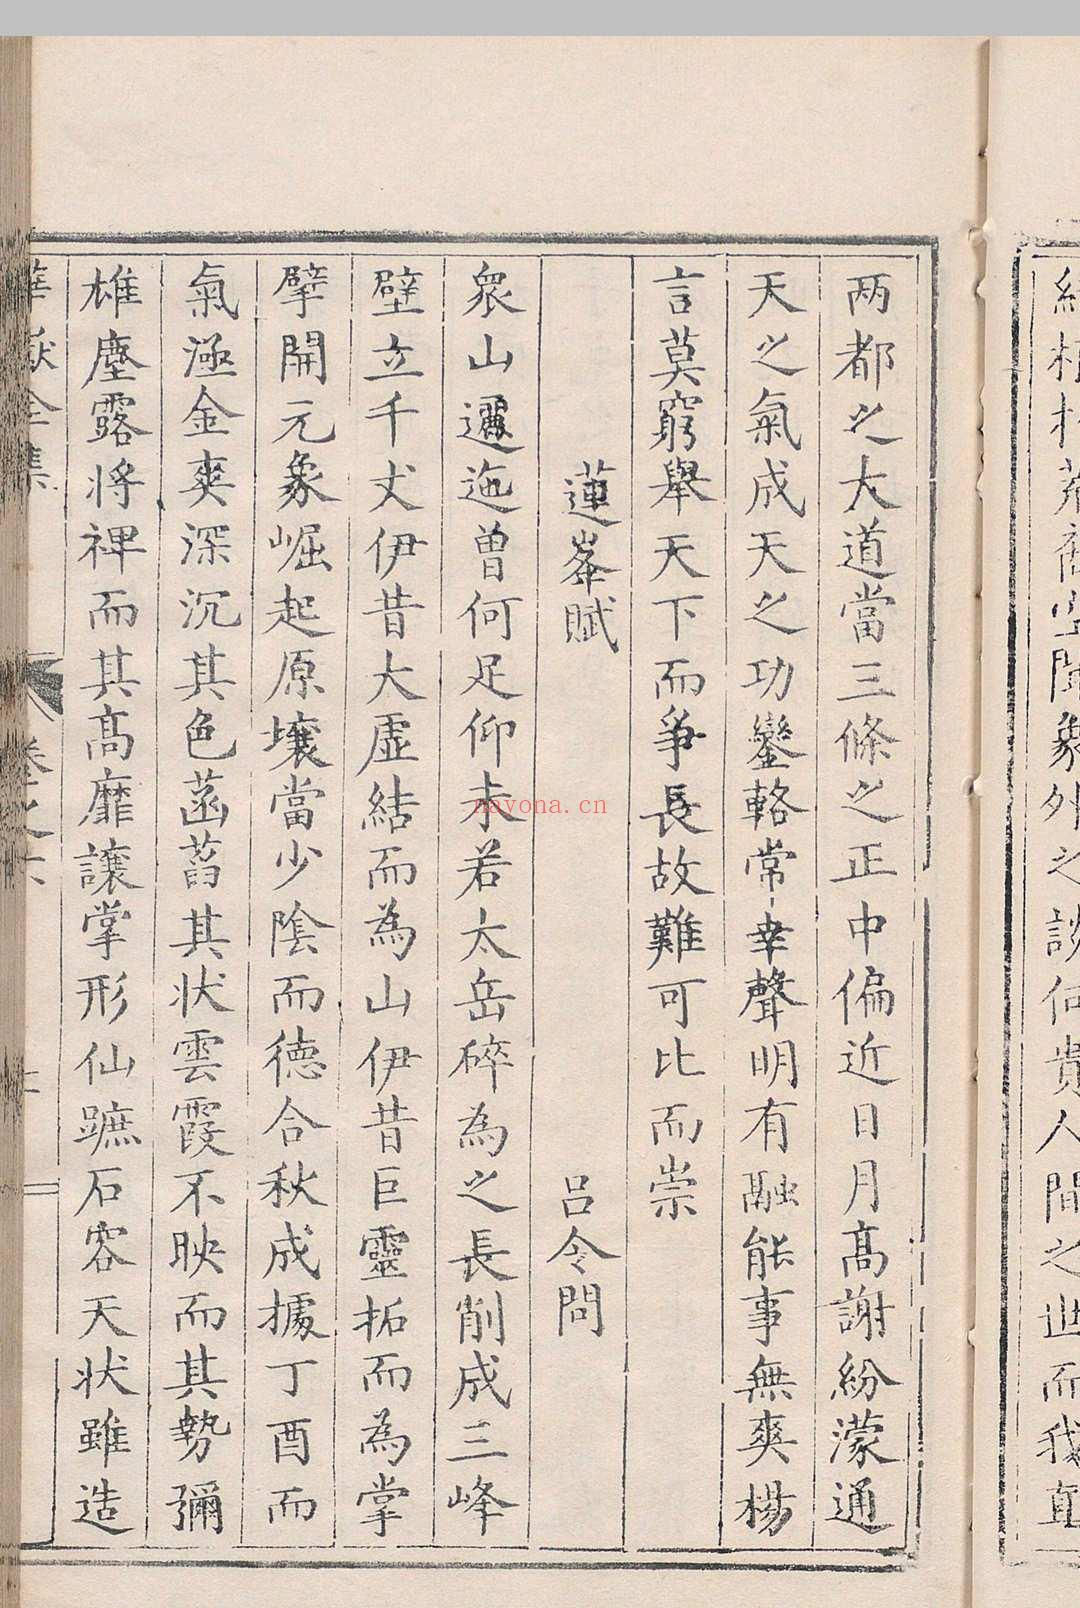 植
外之談何貴人間之世而我直
两都之大道當三條之正中偏近日月髙謝紛濛通
天之氣成天之功鑾輅常幸聲明有融能事無爽楊
言莫窮舉天下而爭長故難可比而崇
蓮峯賦 呂令問
衆山邐迤曾何足仰未若太岳碎為之長削成三峰
壁立千丈伊昔大虛結而為山伊昔巨靈拓而為掌
擘開元象崛起原壤當少陰而德合秋成據丁酉而
氣極金爽深沉其色菡萏其状雲霞不映而其勢彌
雄塵露將裨而其髙靡讓掌形仙蹠石容天状雖造
華嶽全集 卷之六
nayona.cn